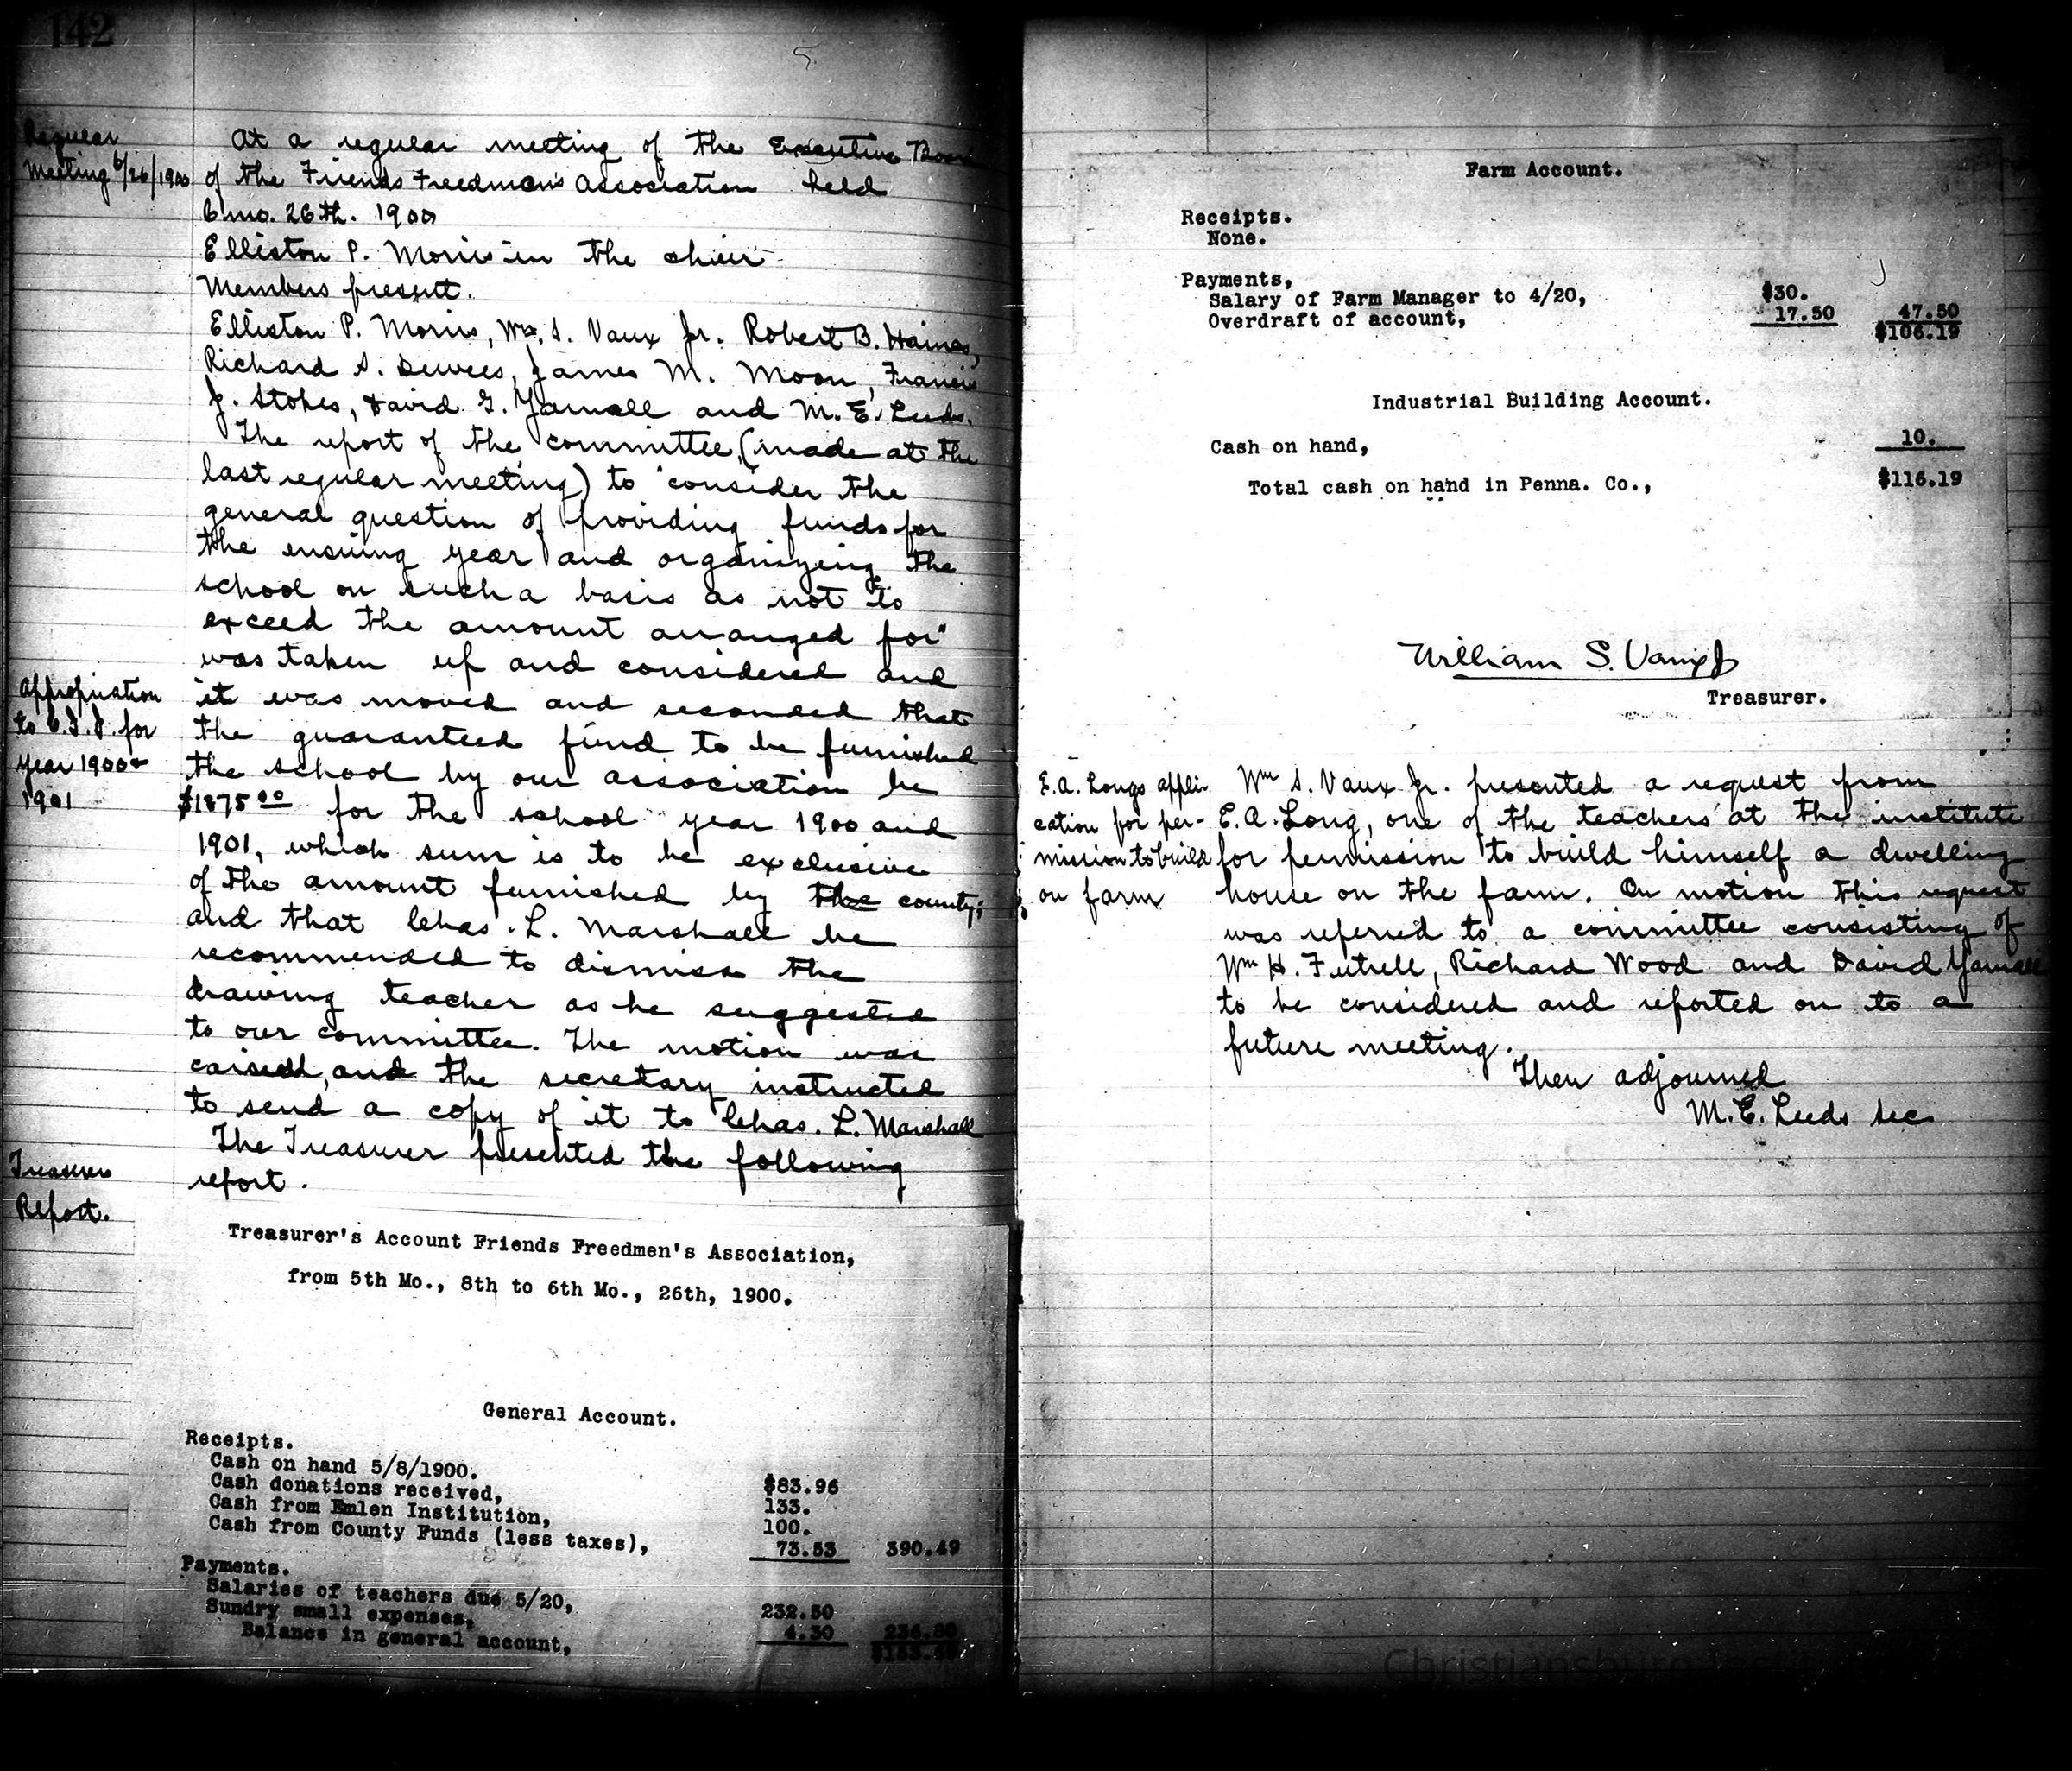 142
Regular
Meeting 6/26/1900
At a regular meeting of the Executive Board
of the Friends Freedmen's Association held
6 mo. 26th. 1900
Elliston P. Morris in the chair
Members present.
Elliston P. Morris, Wm. S. Vaux Jr. Robert B. Haines,
Richard S. Dewees, James M. Moon, Francis
J. Stokes, David G. Yarnall and M. E. Leeds.
The report of the committee, (made at the
last regular meeting) to "consider the
general question of providing funds for
the ensuing year and organizing the
school on such a basis as not to
exceed the amount arranged for"
was taken up and considered and
Appropriation
to C.I.I. for
year 1900 &
1901
it was moved and seconded that
the guaranteed fund to be furnished
the school by our association be
$1875.00 for the school year 1900 and
1901, which sum is to be exclusive
of the amount furnished by the county;
and that Chas. L. Marshall be
recommended to dismiss the
drawing teacher as he suggested
to our committee. The motion was
caried, and the secretary instructed
to send a copy of it to Chas. L. Marshall
Treasurers
Report.
The Treasurer presented the following
report.
Treasurer's Account Friends Freedmen's Association,
from 5th Mo., 8th to 6th Mo., 26th, 1900.
General Account.
Receipts.
Cash on hand 5/8/1900. $83.96
Cash donations received, 133.
Cash from Emlen Institution, 100.
Cash from County Funds (less taxes), 73.53 390.49
Payments.
Salaries of teachers due 5/20, 232.50
Sundry small expenses, 4.30 236.80
Balance in general account, $153.69
Farm Account.
Receipts.
None.
Payments,
Salary of Farm Manager to 4/20, $30.
Overdraft of account, 17.50 47.50
$106.19
Industrial Building Account.
Cash on hand, 10.
Total cash on hand in Penna. Co., $116.19
William S. Vaux Jr
Treasurer.
E.A. Longs appli-
cation for per-
mission to build
on farm
Wm S. Vaux Jr. presented a request from
E. A. Long, one of the teachers at the institute
for permission to build himself a dwelling
house on the farm. On motion this request
was referred to a committee consisting of
Wm H. Futrell, Richard Wood and David Yarnall
to be considered and reported on to a
future meeting.
Then adjourned
M. E. Leeds Sec